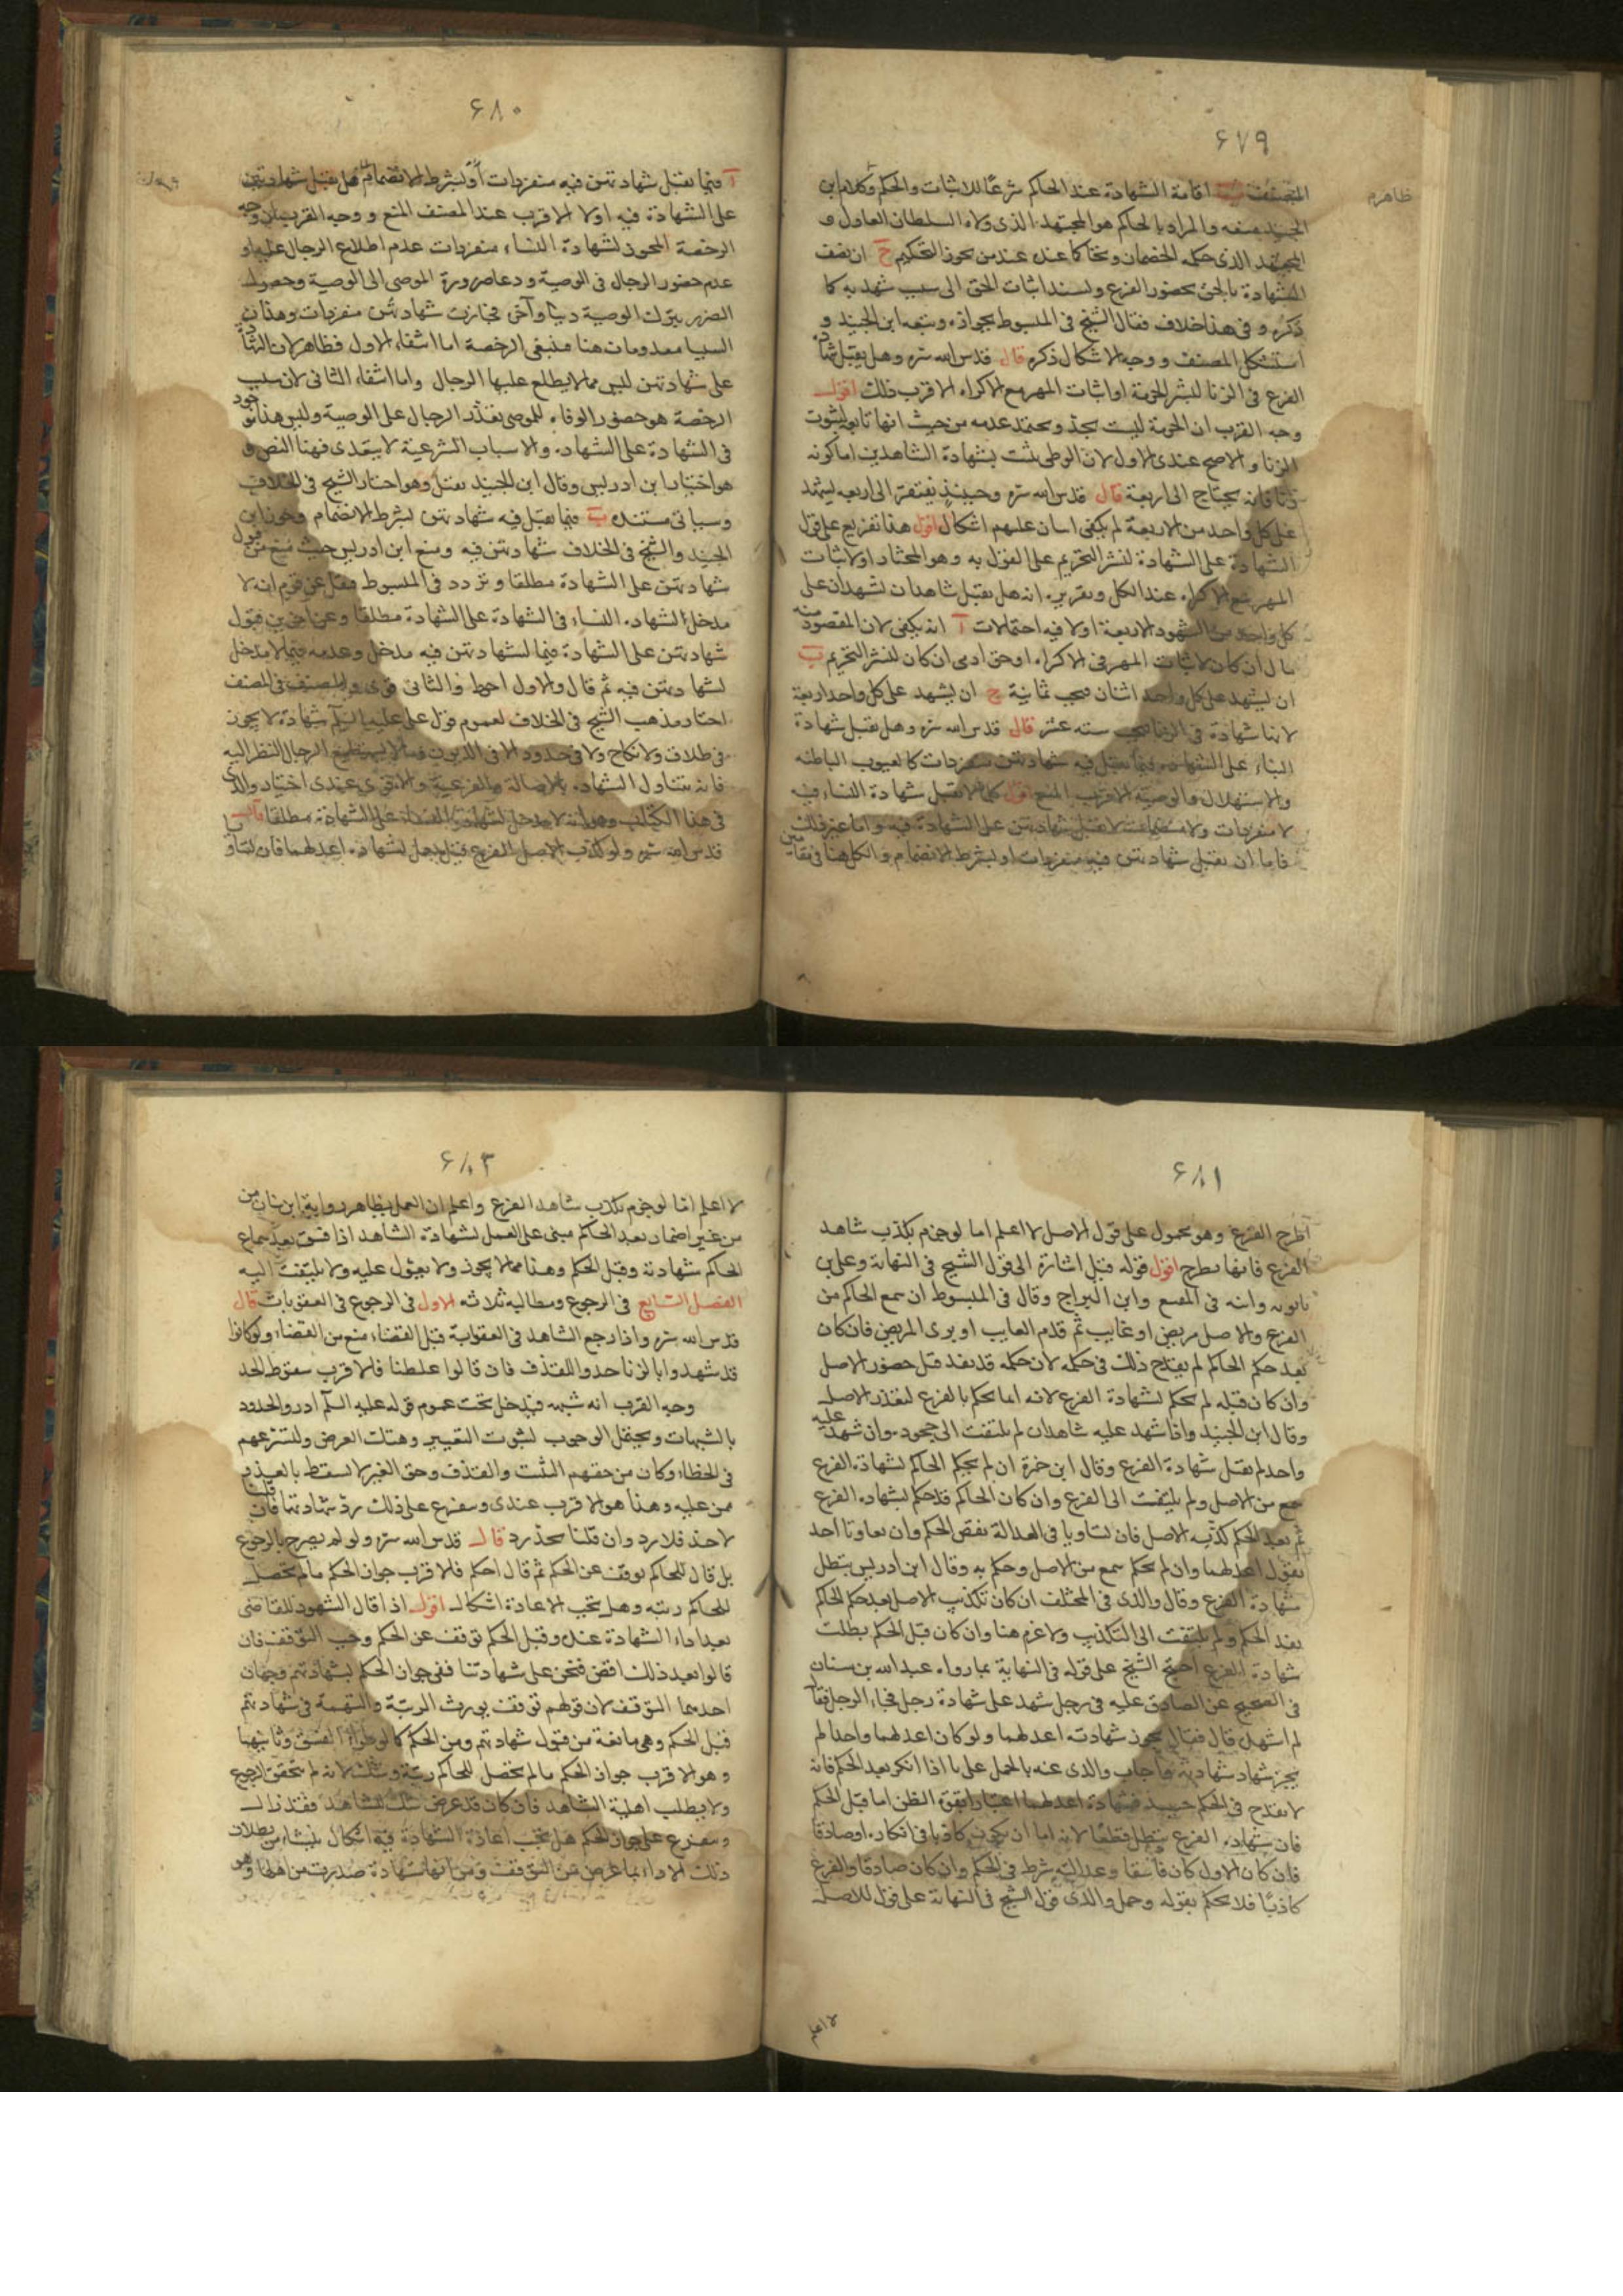 ۶۷۹
ظاهرم
المصنف ب اقامة الشهادة عند الحاكم شرعًا للاثبات والحكم وكلام ابن
الجنيد منعه والمراد بالحاكم هو المجتهد الذى ولاه السلطان العادل و
المجتهد الذى حكمه الخصمان وتحاكما عنده عند من يجوز التحكيم ج ان يضف
الشهادة بالحق بحضور الفرع ولسند اثبات الحق الى سبب شهد به كما
ذكره و فى هذا خلاف فقال الشيخ فى المبسوط بجوازه وتبعه ابن الجنيد و
استشكل المصنف ووجه الاشكال ذكره قال قدس الله سره وهل يقبل شهادة
الفرع فى الزنا لنشر الحرمة او اثبات المهر مع الاكراه الاقرب ذلك اقول
وجه القرب ان الحرمة ليست بحد ويحتمل عدمه من حيث انها تابع لثبوت
الزنا والاصح عندى الاول لان الوطى يثبت بشهادة الشاهدين اما كونه
زنا فانه يحتاج الى اربعة قال قدس الله سره وحينئذ يفتقر الى اربعه ليشهد
على كل واحد من الاربعة ام يكفى اثنان عليهم اشكال اقول هذا تفريع على قول
الشهادة على الشهادة لنشر التحريم على القول به وهو المختار او لاثبات
المهر مع الاكراه عند الكل وتقريره انه هل يقبل شاهدان لشهدان على
كل واحد من الشهود الاربعة اولا فيه احتمالات آ انه يكفى لان المقصود منه
مال ان كان لاثبات المهر فى الاكراه او حق ادمى ان كان لنشر التحريم ب
ان يشهد على كل واحد اثنان فيجب ثمانية ج ان يشهد على كل واحد اربعة
لانها شهادة فى الزنا فيجب سته عشر قال قدس الله سره وهل يقبل شهادة
النساء على الشهادة فيما يقبل فيه شهادتهن منفردات كالعيوب الباطنه
والاستهلال والوصية الاقرب المنع اقول كلما لا يقبل شهادة النساء فيه
لا منفردات ولا منضمات لا تقبل شهادتهن على الشهادة فيه واما غير ذلك
فاما ان يقبل شهادتهن فيه منفردات او بشرط الانضمام والكل هنا فى مقامين
۶۸۰
آ فيما يقبل شهادتهن فيه منفردات او بشرط الانضمام هل يقبل شهادتهن
على الشهادة فيه اولا الاقرب عند المصنف المنع ووجه القرب ان وجه
الرخصة المجوز لشهادة النساء منفردات عدم اطلاع الرجال عليه او
عدم حضور الرجال فى الوصية ودعا ضرورة الموصى الى الوصية وحصول
الضرر بترك الوصية دينًا وآخرى فجازت شهادتهن منفردات وهذان
السببان معدومان هنا فينبغى الرخصة اما انتفاء الاول فظاهر لان الشهادة
على شهادتهن ليس مما لا يطلع عليها الرجال واما انتفاء الثانى لان سبب
الرخصة هو حضور الوفاه للموصى بتعذر الرجال على الوصية وليس هذا موجود
فى الشهادة على الشهادة والاسباب الشرعية لا يتعدى فيها النص و
هو اختيار ابن ادريس وقال ابن الجنيد يقبل وهو اختار الشيخ فى الخلاف
وسياتى مستنده ب فيما يقبل فيه شهادتهن بشرط الانضمام وجوز ابن
الجنيد والشيخ فى الخلاف شهادتهن فيه ومنع ابن ادريس حيث منع من قبول
شهادتهن على الشهادة مطلقا وتردد فى المبسوط فنقل عن قوم انه لا
مدخل لشهادة النساء فى الشهادة على الشهادة مطلقا وعن اخرين قبول
شهادتهن على الشهادة فيما لشهادتهن فيه مدخل وعدمه فيما لا مدخل
لشهادتهن فيه ثم قال والاول احوط والثانى قوى والمصنف فى المختلف
اختار مذهب الشيخ فى الخلاف لعموم قول على عليه السلم شهادة لا يجوز
فى طلاق ولا نكاح ولا فى حدود الا فى الديون وما لا يستطيع الرجال النظر اليه
فانه يتناول الشهادة بالاصالة والفرعية والاقوى عندى اختيار والدى
فى هذا الكتاب وهو انه لا مدخل لشهادة النساء على الشهادة مطلقا قال
قدس الله سره ولو كذب الاصل الفرع قيل يعمل بشهادة اعدلهما فان تساويا
۶۸۱
اطرح الفرع وهو محمول على قول الاصل لا اعلم اما لو جزم بكذب شاهد
الفرع فانها يطرح اقول قوله قيل اشارة الى قول الشيخ فى النهاية وعلى بن
بابويه وابنه فى المقنع وابن البراج وقال فى المبسوط ان سمع الحاكم من
الفرع والاصل مريض او غايب ثم قدم الغايب او برى المريض فان كان
بعد حكم الحاكم لم يقدح ذلك فى حكمه لان حكمه قد نفذ قبل حضور الاصل
وان كان قبله لم يحكم لشهادة الفرع لانه انما يحكم بالفرع لتعذر الاصل
وقال ابن الجنيد واذا شهد عليه شاهدان لم يلتفت الى جحوده وان شهد عليه
واحد لم يقبل شهادة الفرع وقال ابن حمزة ان لم يحكم الحاكم لشهادة الفرع
سمع من الاصل ولم يلتفت الى الفرع وان كان الحاكم قد حكم بشهادة الفرع
ثم بعد الحكم كذبه الاصل فان تساويا فى العدالة نقض الحكم وان تفاوتا اخذ
بقول اعدلهما وان لم يحكم سمع من الاصل وحكم به وقال ابن ادريس يبطل
شهادة الفرع وقال والدى فى المختلف ان كان تكذيب الاصل بعد حكم الحاكم
نفذ الحكم ولم يلتفت الى التكذيب ولا غرم هنا وان كان قبل الحكم بطلت
شهادة الفرع احتج الشيخ على قوله فى النهاية بما رواه عبد الله بن سنان
فى الصحيح عن الصادق عليه فى رجل شهد على شهادة رجل فجاء الرجل فقال
لم اشهده قال فقال يجوز شهادته اعدلهما ولو كان اعدلهما واحدا لم
يجز شهاد شهادته فاجاب والدى عنه بالحمل على ما اذا انكر بعد الحكم فانه
لا يقدح فى الحكم حينئذ فشهادة اعدلهما اعتبارا بقوة الظن اما قبل الحكم
فان شهادة الفرع يبطل قطعًا لانه اما ان يكون كاذبا فى انكاره او صادقا
فان كان الاول كان فاسقا وعدالته شرط فى الحكم وان كان صادقا والفرع
كاذبًا فلا يحكم بقوله وحمل والدى قول الشيخ فى النهاية على قول للاصل
لا اعلم
۶۸۳
لا اعلم اما لو جزم بكذب شاهد الفرع واعلم ان العمل بظاهر رواية ابن سنان من
من غير اضمار بعد الحاكم مبنى على العمل لشهادة الشاهد اذا فسق بعد سماع
الحاكم شهادته وقبل الحكم وهذا مما لا يجوز ولا يعول عليه ولا يلتفت اليه
الفصل السابع فى الرجوع ومطالبه ثلاثه الاول فى الرجوع فى العقوبات قال
قدس الله سره واذا رجع الشاهد فى العقوابة قبل القضاء منع من القضاء ولو كانوا
قد شهدوا بالزنا حدوا للقذف فان قالوا غلطنا فالاقرب سقوط الحد
وجه القرب انه شبهة فيدخل تحت عموم قوله عليه السلم ادروا الحدود
بالشبهات ويحتمل الوجوب لثبوت التعيير وهتك العرض ولتسرعهم
فى الخطاء وكان من حقهم التثبت والقذف وحق الغير لا يسقط بالعذر
ممن عليه وهذا هو الاقرب عندى ويتفرع على ذلك رد شهادتنا فان قلنا
لا حد فلا رد وان قلنا بحد رد قال قدس الله سره ولو لم يصرح بالرجوع
بل قال للحاكم توقف عن الحكم ثم قال احكم فالاقرب جواز الحكم ما لم تحصل
للحاكم ريبه وهل يجب الاعادة اشكال اقول اذا قال الشهود للقاضى
بعد اداء الشهادة عنده وقبل الحكم توقف عن الحكم وجب التوقف فان
قالوا بعد ذلك اقض فنحن على شهادتنا ففى جواز الحكم بشهادتهم وجهان
احدهما التوقف لان قولهم توقف يورث الريبة والتهمة فى شهادتهم
قبل الحكم وهى مانعة من قبول شهادتهم ومن الحكم كما لو طراء الفسق وثانيهما
وهو الاقرب جواز الحكم ما لم تحصل للحاكم ريبة وشك لانه لم يتحقق الرجوع
ولا يبطلب اهلية الشاهد فان كان قد عرض شك للشاهد فقد زال
ويتفرع على جواز الحكم هل يجب اعادة الشهادة فيه اشكال ينشاء من بطلان
ذلك الاداء بما عرض من التوقف ومن انها شهادة صدرت من اهلها وهو